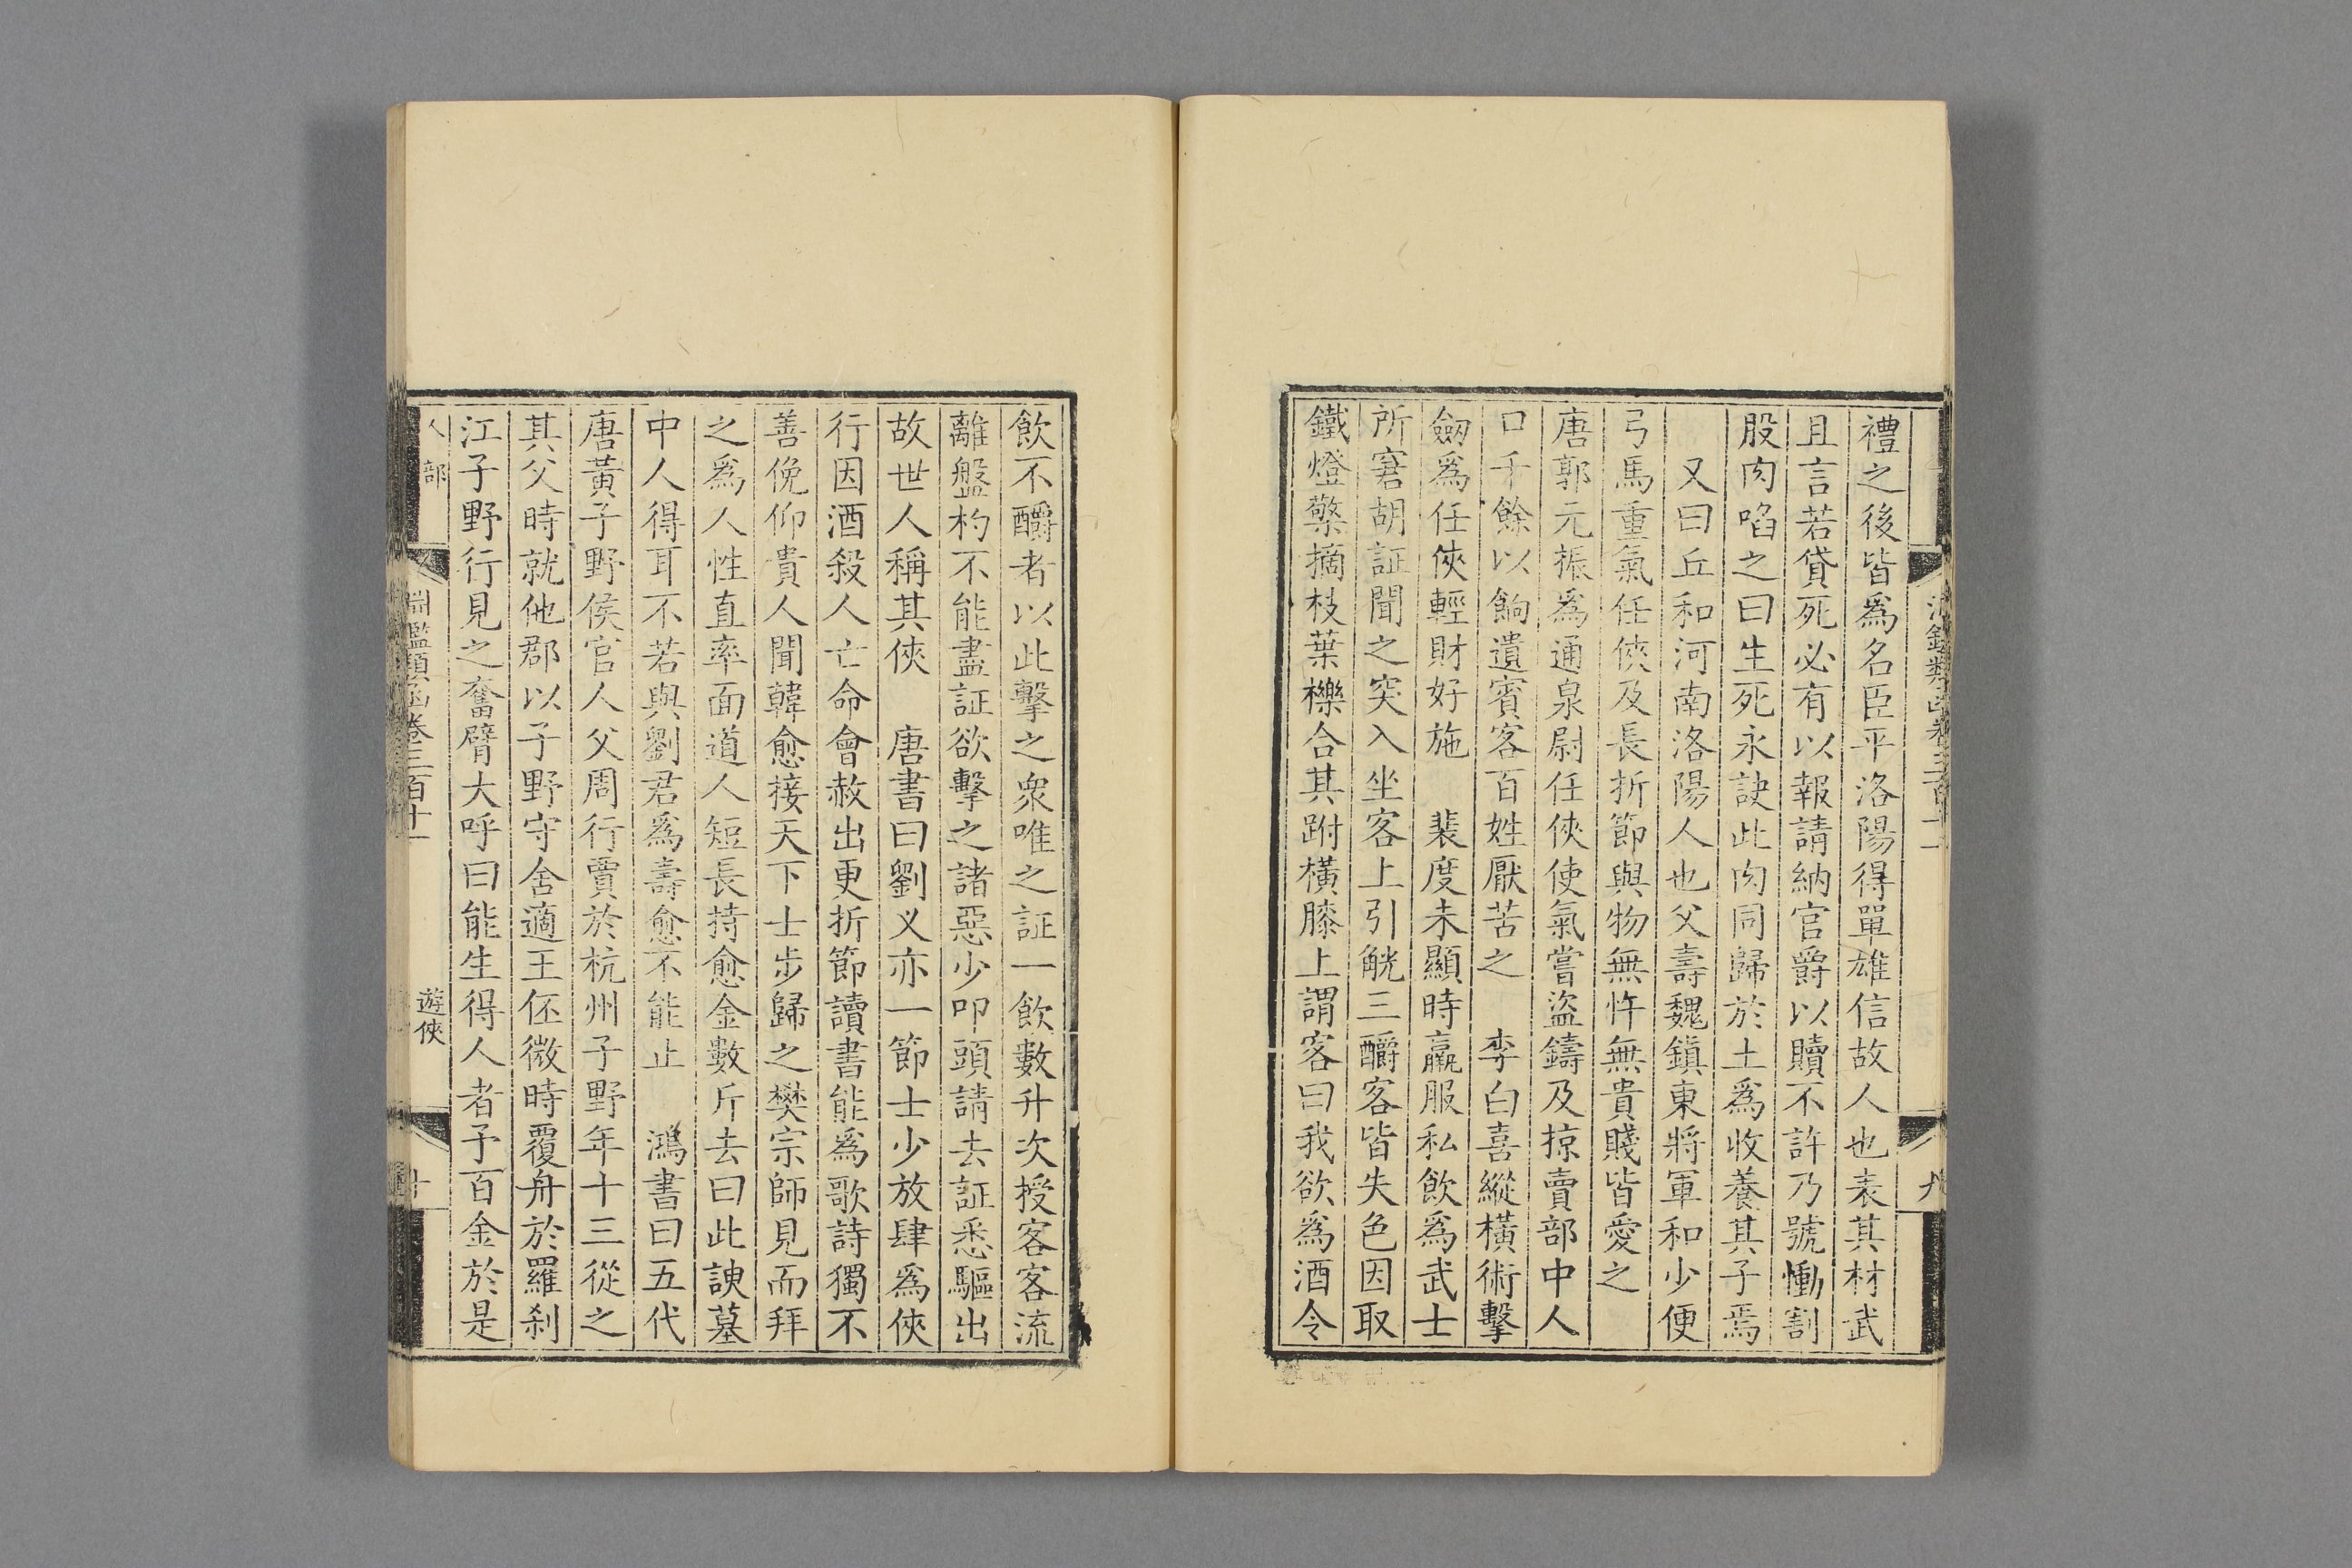 禮之後皆爲名臣平洛陽得單雄信故人也表其材武
且言若貸死必有以報請納官爵以贖不許乃號慟割
股肉啗之曰生死永訣此肉同歸於土爲收養其子焉
又曰丘和河南洛陽人也父壽魏鎮東將軍和少便
弓馬重氣任俠及長折節與物無忤無貴賤皆愛之
唐郭元振爲通泉尉任俠使氣嘗盜鑄及掠賣部中人
口千餘以餉遺賓客百姓厭苦之　李白喜縱橫術擊
劒爲任俠輕財好施　裴度未顯時羸服私飲爲武士
所窘胡証聞之突入坐客上引觥三釂客皆失色因取
鐵燈檠摘枝葉櫟合其跗橫膝上謂客曰我欲爲酒令
飲不釂者以此擊之衆唯之証一飲數升次授客客流
離盤杓不能盡証欲擊之諸惡少叩頭請去証悉驅出
故世人稱其俠　唐書曰劉义亦一節士少放肆爲俠
行因酒殺人亡命會赦出更折節讀書能爲歌詩獨不
善俛仰貴人聞韓愈接天下士步歸之樊宗師見而拜
之爲人性直率面道人短長持愈金數斤去曰此諛墓
中人得耳不若與劉君爲壽愈不能止　鴻書曰五代
唐黃子野侯官人父周行賈於杭州子野年十三從之
其父時就他郡以子野守舍適王伾微時覆舟於羅刹
江子野行見之奮臂大呼曰能生得人者予百金於是
人部
淵鑑類函卷三百十一
遊俠